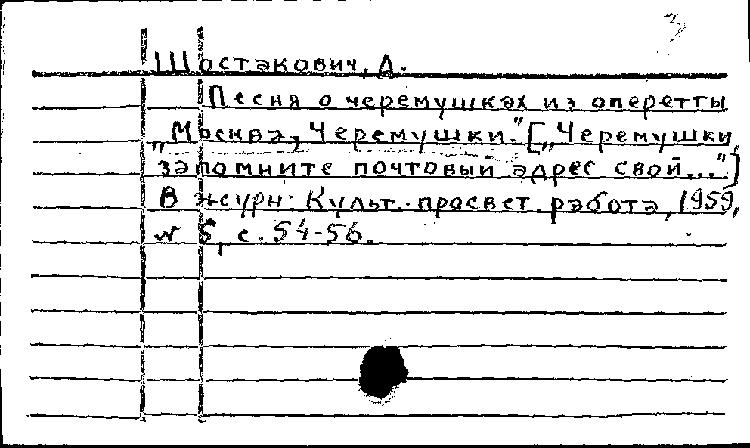 Шостакович, Д.
Песня о черемушках из оперетты
„Москва, Черемушки." [„Черемушки,
запомните почтовый адрес свой..."]
В журн: Культ.-просвет. работа, 1959,
№ 5, с. 54-56.